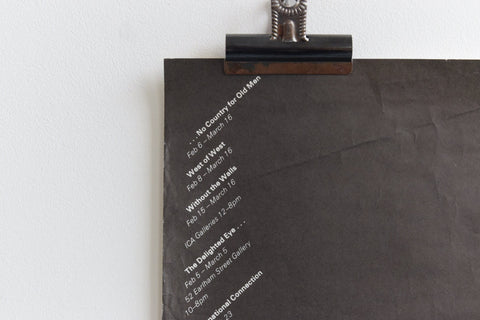 . . . No Country for Old Men
Feb 6 – March 16
West of West
Feb 8 – March 16
Without the Walls
Feb 15 – March 16
ICA Galleries 12–8pm
The Delighted Eye . . .
Feb 5 – March 5
52 Earlham Street Gallery
10–8pm
national Connection
23